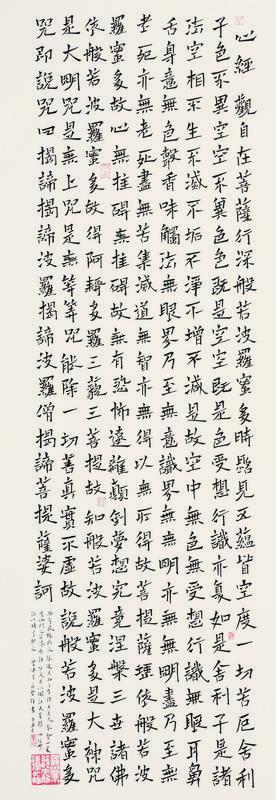 心經觀自在菩薩行深般若波羅蜜多時照見五蘊皆空度一切苦厄舍利
子色不異空空不異色色既是空空既是色受想行識亦復如是舍利子是諸
法空相不生不滅不垢不淨不增不減是故空中無色無受想行識無眼耳鼻
舌身意無色聲香味觸法無眼界乃至無意識界無無明亦無無明盡乃至無
老死亦無老死盡無苦集滅道無智亦無得以無所得故菩提薩埵依般若波
羅蜜多故心無挂礙無挂礙故無有恐怖遠離顛倒夢想究竟涅槃三世諸佛
依般若波羅蜜多故得阿耨多羅三藐三菩提故知般若波羅蜜多是大神咒
是大明咒是無上咒是無等等咒能除一切苦真實不虛故說般若波羅蜜多
咒即說咒曰揭諦揭諦波羅揭諦波羅僧揭諦菩提薩婆訶